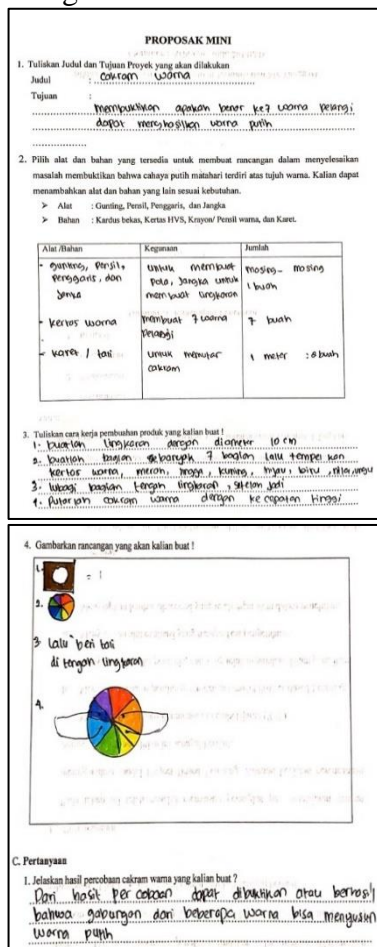 PROPOSAK MINI
1. Tuliskan Judul dan Tujuan Proyek yang akan dilakukan
Judul : cakram warna
Tujuan :
membuktikan apakah benar ke7 warna pelangi
dapat menghasilkan warna putih
2. Pilih alat dan bahan yang tersedia untuk membuat rancangan dalam menyelesaikan
masalah membuktikan bahwa cahaya putih matahari terdiri atas tujuh warna. Kalian dapat
menambahkan alat dan bahan yang lain sesuai kebutuhan.
➤ Alat : Gunting, Pensil, Penggaris, dan Jangka
➤ Bahan : Kardus bekas, Kertas HVS, Krayon/ Pensil warna, dan Karet.
Alat /Bahan Kegunaan Jumlah
- gunting, pensil, untuk membuat masing - masing
penggaris, dan pola, jangka untuk 1 buah
jangka membuat lingkaran
- kertas warna membuat 7 warna 7 buah
pelangi
- karet / tali untuk memutar 1 meter
cakram
3. Tuliskan cara kerja pembuatan produk yang kalian buat !
1. buatlah lingkaran dengan diameter 10 cm
2. buatlah bagian sebanyak 7 bagian lalu tempelkan
kertas warna, merah, jingga, kuning, hijau, biru, nila, ungu
3. lubagi bagian tengah lingkaran, setelah jadi
4. Putarlah cakram warna dengan kecepatan tinggi
4. Gambarkan rancangan yang akan kalian buat !
1.
2.
3 Lalu beri tali
di tengah lingkaran
4.
C. Pertanyaan
1. Jelaskan hasil percobaan cakram warna yang kalian buat ?
Dari hasil percobaan dapat dibuktikan atau berhasil
bahwa gabungan dari beberapa warna bisa menyusun
warna putih